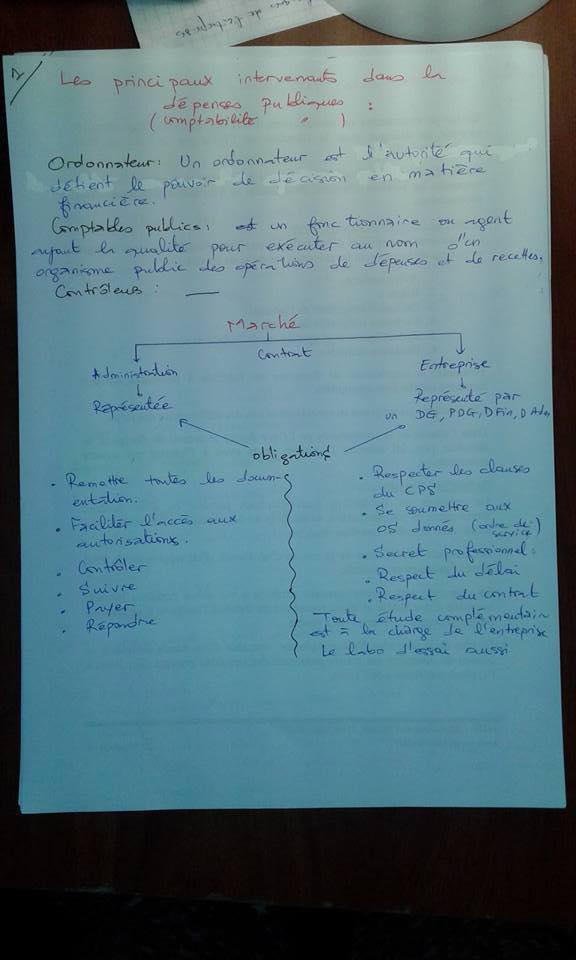 Les principaux intervenants dans la
dépenses publiques :
( comptabilité " )
Ordonnateur : Un ordonnateur est l'autorité qui
détient le pouvoir de décision en matière
financière.
Comptables publics : un fonctionnaire ou agent
ayant la qualité pour exécuter au nom d'un
organisme public des opérations de dépenses et de recettes.
Contrôleurs : —
Marché
Contrat
Administration
Entreprise
Représentée
Représenté par
un DG, PDG, D Fin, D Adm
obligations
• Remettre toutes les docum-
entation.
• Faciliter l'accès aux
autorisations.
• Contrôler
• Suivre
• Payer
• Répondre
• Respecter les clauses
du CPS
• Se soumettre aux
OS donnés (ordre de
service)
• Secret professionnel.
• Respect du délai
• Respect du contrat
Toute étude complémentair
est = la charge de l'entreprise
Le labo d'essai aussi